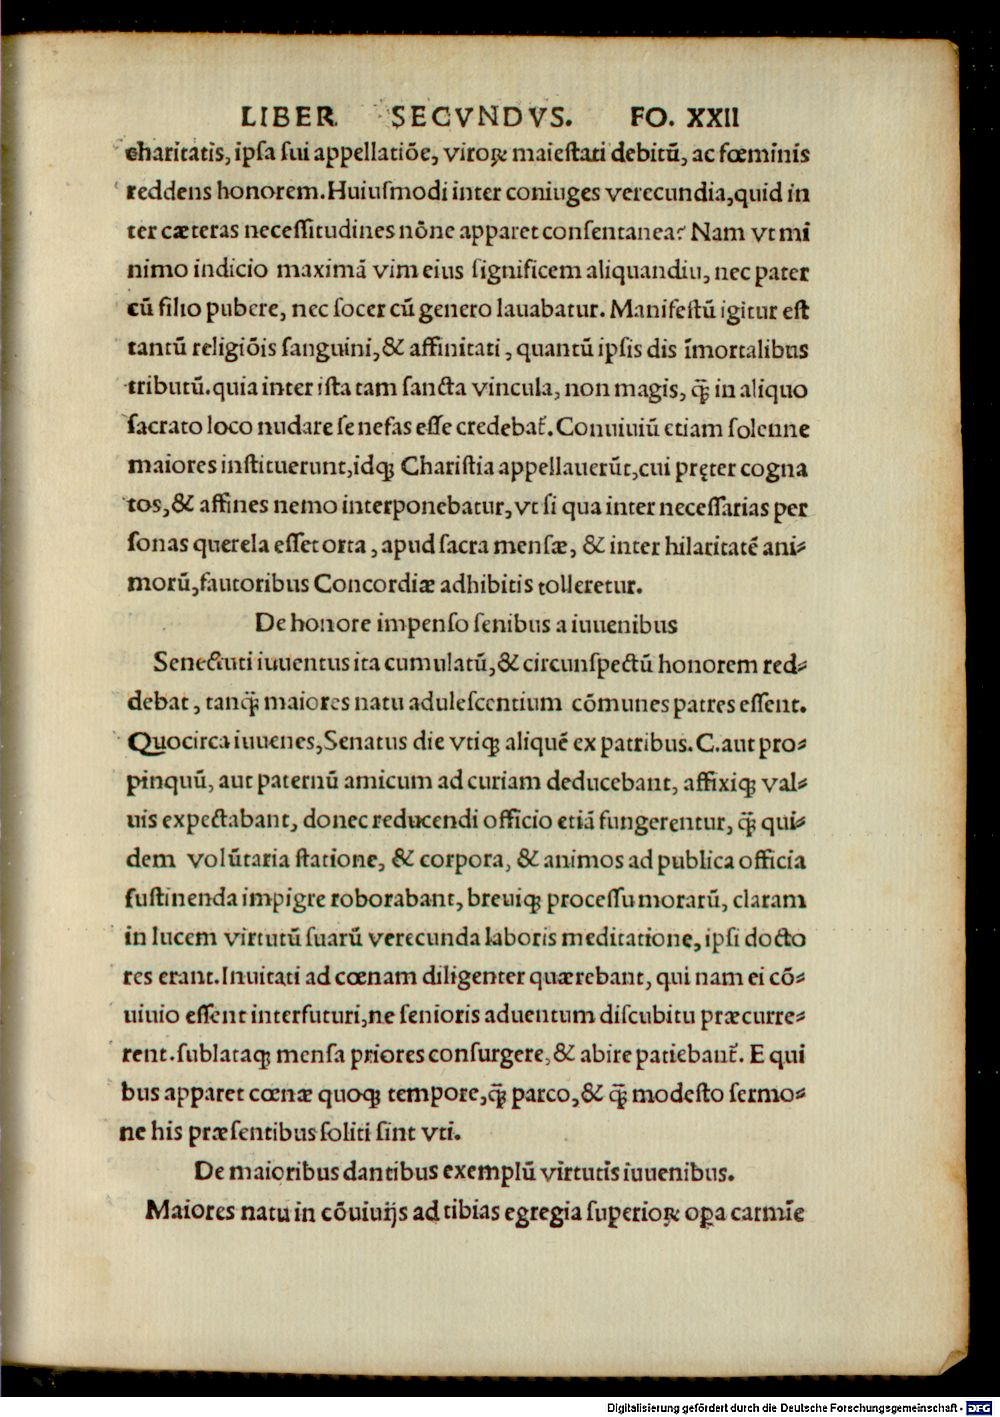 LIBER SECVNDVS. FO. XXII
charitatis, ipsa sui appellatiõe, viroꝝ maiestati debitũ, ac fœminis
reddens honorem. Huiusmodi inter coniuges verecundia, quid in
ter cæteras necessitudines nõne apparet consentanea? Nam vt mi
nimo indicio maximã vim eius significem aliquandiu, nec pater
cũ filio pubere, nec socer cũ genero lauabatur. Manifestũ igitur est
tantũ religiõis sanguini, & affinitati, quantũ ipsis dis ĩmortalibus
tributũ. quia inter ista tam sancta vincula, non magis, q̃ in aliquo
sacrato loco nudare se nefas esse credebat̃. Conuiuiũ etiam solenne
maiores instituerunt, idq; Charistia appellauerũt, cui pręter cogna
tos, & affines nemo interponebatur, vt si qua inter necessarias per
sonas querela esset orta, apud sacra mensæ, & inter hilaritatẽ ani⸗
morũ, fautoribus Concordiæ adhibitis tolleretur.
De honore impenso senibus a iuuenibus
Senectuti iuuentus ita cumulatũ, & circunspectũ honorem red⸗
debat, tanq̃ maiores natu adulescentium cõmunes patres essent.
Quocirca iuuenes, Senatus die vtiq; aliquẽ ex patribus. C. aut pro⸗
pinquũ, aut paternũ amicum ad curiam deducebant, affixiq; val⸗
uis expectabant, donec reducendi officio etiã fungerentur, q̃ qui⸗
dem volũtaria statione, & corpora, & animos ad publica officia
sustinenda impigre roborabant, breuiq; processu morarũ, claram
in lucem virtutũ suarũ verecunda laboris meditatione, ipsi docto
res erant. Inuitati ad cœnam diligenter quærebant, qui nam ei cõ⸗
uiuio essent interfuturi, ne senioris aduentum discubitu præcurre⸗
rent. sublataq; mensa priores consurgere, & abire patiebant̃. E qui
bus apparet cœnæ quoq; tempore, q̃ parco, & q̃ modesto sermo⸗
ne his præsentibus soliti sint vti.
De maioribus dantibus exemplũ virtutis iuuenibus.
Maiores natu in cõuiuijs ad tibias egregia superioꝝ oꝑa carmĩe
Digitalisierung gefördert durch die Deutsche Forschungsgemeinschaft - DFG